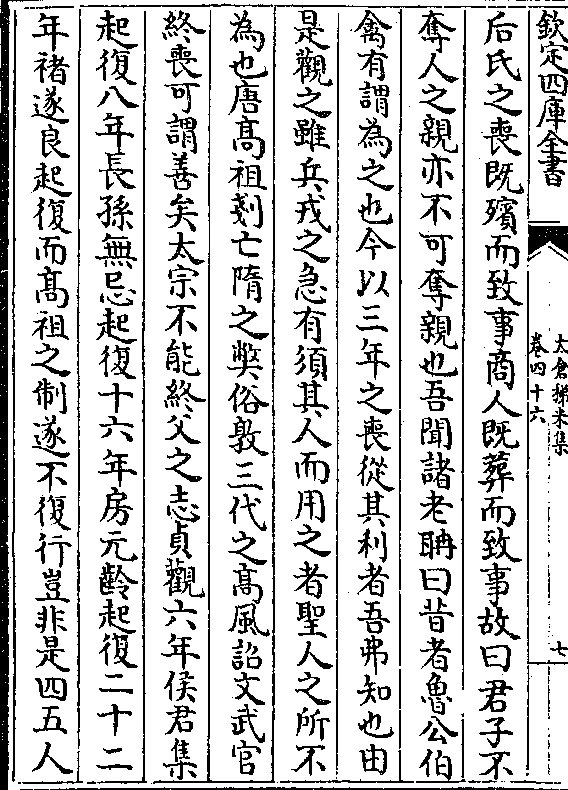 欽定四庫全書
太倉稊米集
卷四十六
七
后氏之喪既殯而致事商人既葬而致事故曰君子不
奪人之親亦不可奪親也吾聞諸老聃曰昔者魯公伯
禽有謂為之也今以三年之喪從其利者吾弗知也由
是觀之雖兵戎之急有須其人而用之者聖人之所不
為也唐髙祖剗亡隋之弊俗敦三代之髙風詔文武官
終喪可謂善矣太宗不能終父之志貞觀六年侯君集
起復八年長孫無忌起復十六年房元齡起復二十二
年褚遂良起復而髙祖之制遂不復行豈非是四五人